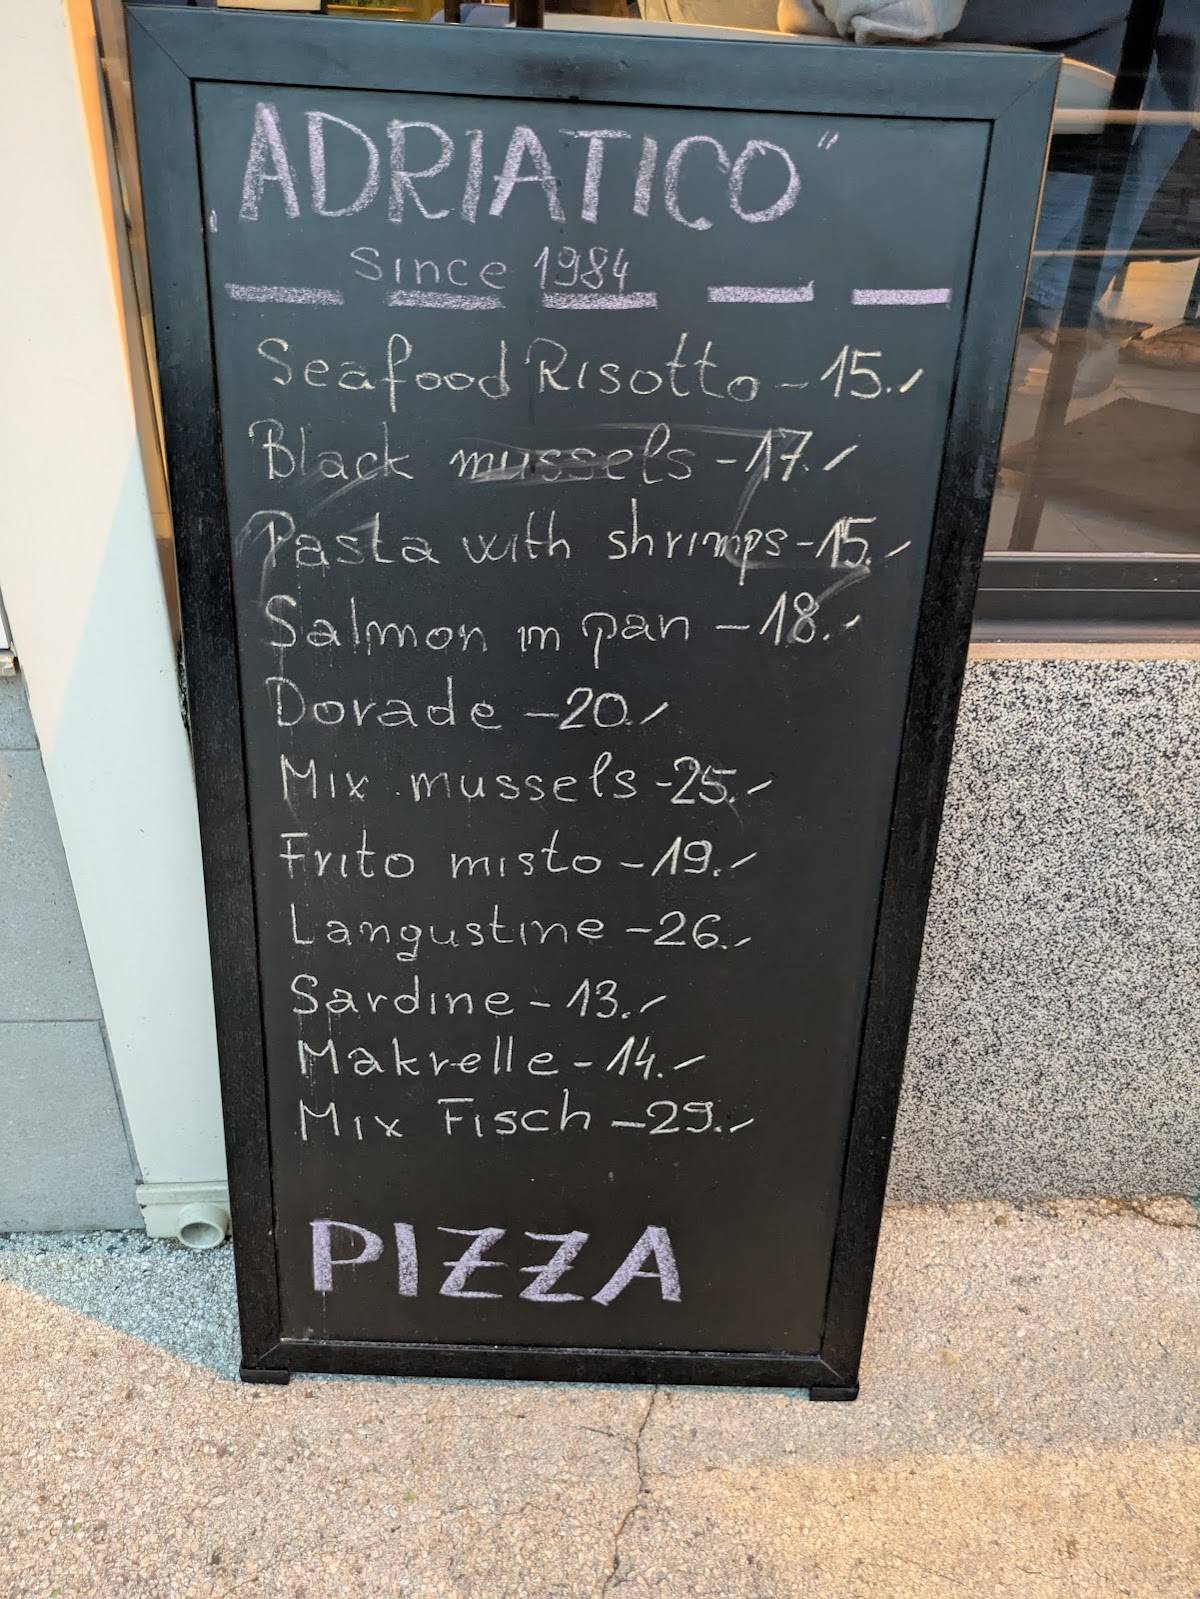 „ADRIATICO"
Since 1984
Seafood Risotto - 15.-
Black mussels - 17.-
Pasta with shrimps - 15.-
Salmon in pan - 18.-
Dorade - 20.-
Mix mussels - 25.-
Frito misto - 19.-
Langustine - 26.-
Sardine - 13.-
Makrelle - 14.-
Mix Fisch - 29.-
PIZZA